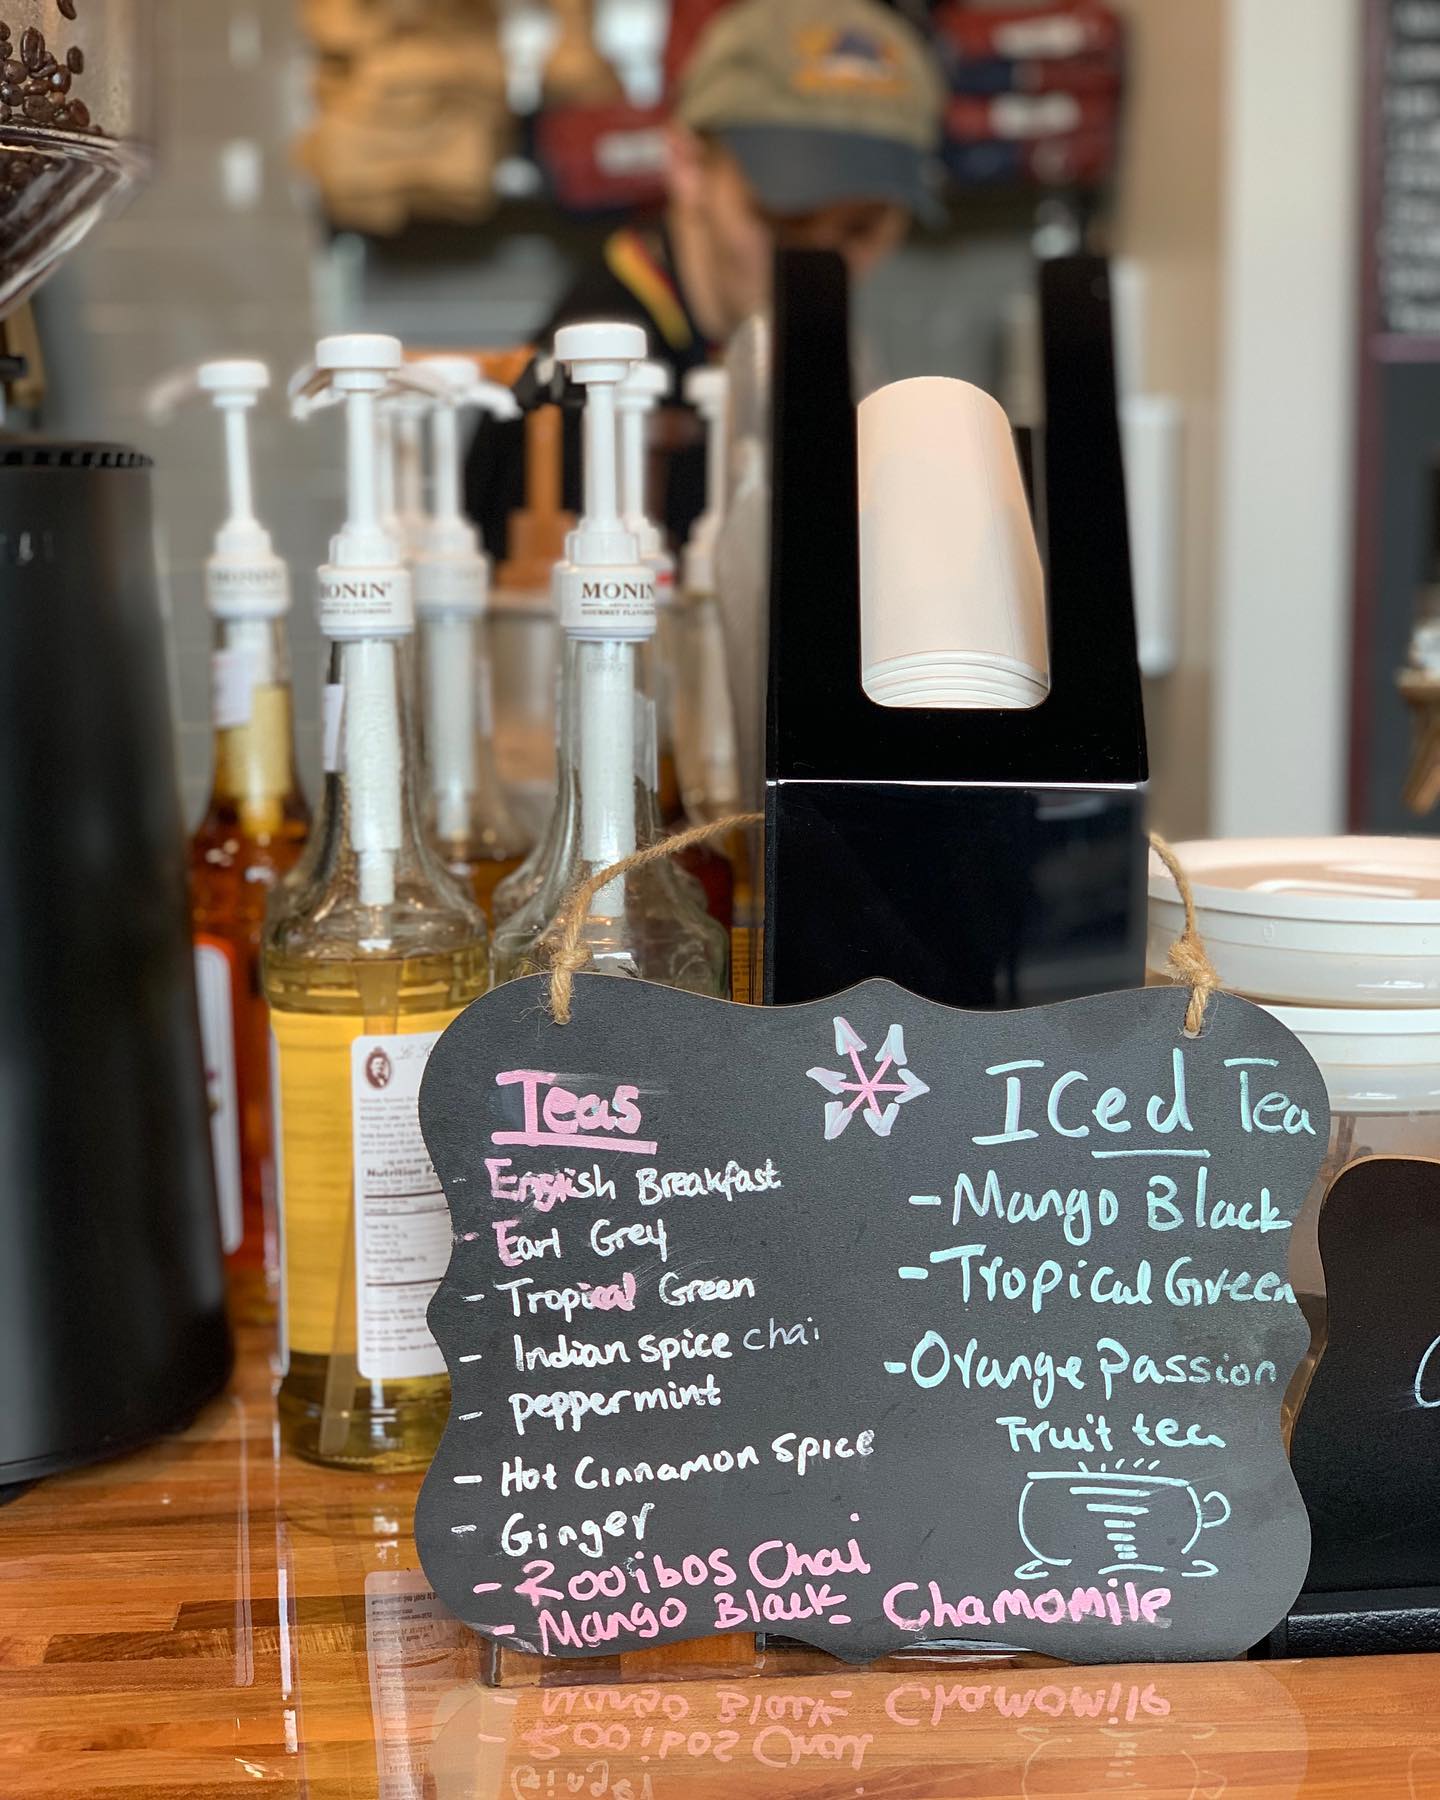 MONIN
GOURMET FLAVORINGS
Teas
- English Breakfast
- Earl Grey
- Tropical Green
- Indian spice chai
- peppermint
- Hot Cinnamon Spice
- Ginger
- Rooibos Chai
- Mango Black - Chamomile
Iced Tea
- Mango Black
- Tropical Green
- Orange Passion
Fruit tea